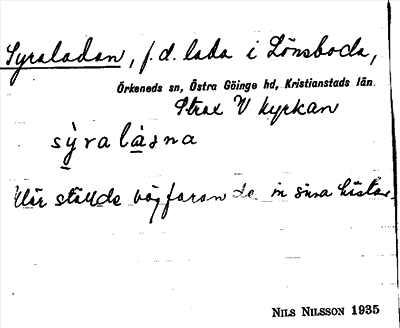 Syraladan, f.d. lada i Lönsboda,
Örkeneds sn, Östra Göinge hd, Kristianstads län.
Strax V kyrkan
sỳralåsna
Här ställde vägfarande in sina hästar.
NILS NILSSON 1935